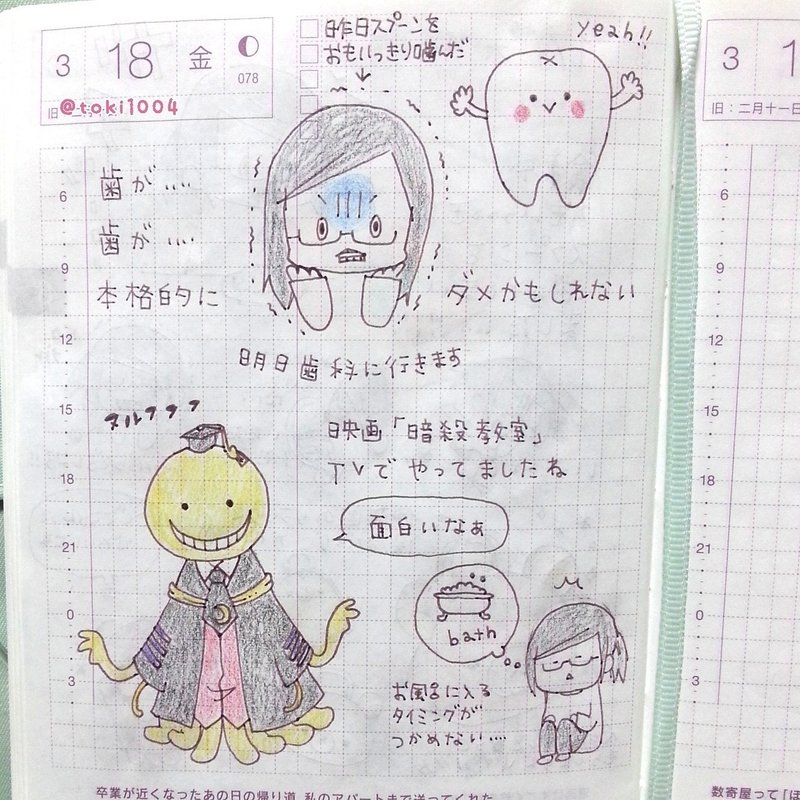 3 18 金
078
@toki1004
昨日スプーンを
おもいっきり噛んだ
yeah!!
歯が....
歯が....
本格的に
ダメかもしれない
明日歯科に行きます
ヌルフフフ
映画「暗殺教室」
TVでやってましたね
面白いなぁ
bath
お風呂に入る
タイミングが
つかめない....
6
9
12
15
18
21
0
3
卒業が近くなったあの日の帰り道、私のアパートまで送ってくれた
3
旧：二月十一日
6
9
12
15
18
21
0
3
数寄屋って「ほ